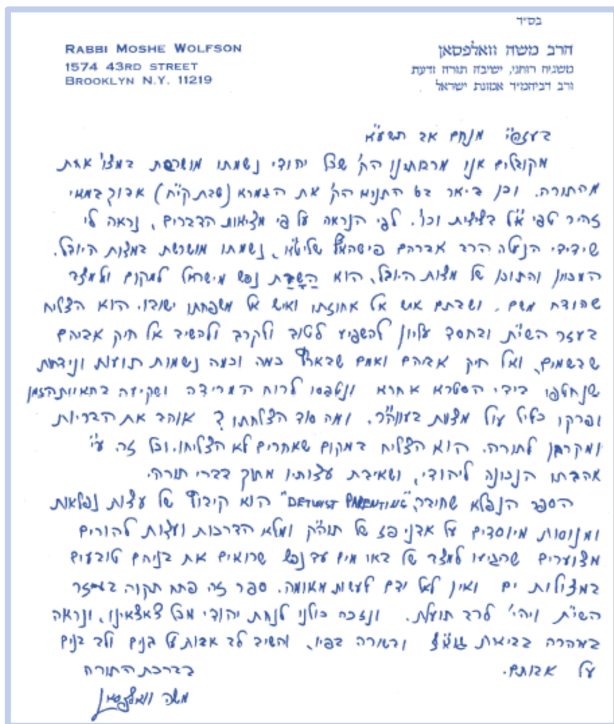 בס״ד
RABBI MOSHE WOLFSON
1574 43RD STREET
BROOKLYN N.Y. 11219
הרב משה וואלפסאן
משגיח רוחני, ישיבה תורה ודעת
ורב דביהמ״ד אמונת ישראל
בעזהי״ מנחם אב תשע״א
מקובלים אנו מרבותינו הק' שכל יהודי נשמתו מושרשת במצו' אחת
מהתורה. וכן ביאר בס' התניא הק' את הגמרא (שבת קי״ח) אבוך במאי
זהיר טפי א״ל בציצית וכו'. לפי הנראה על פי מציאות הדברים, נראה לי
שידידי הנעלה הרב אברהם פישהאף שליט״א, נשמתו מושרשת במצות היובל.
המכוון והתוכן של מצות היובל, הוא הֲשָׁבַת נפש מישראל למקום ולמצב
שהודח משם. ושבתם איש אל אחוזתו ואיש אל משפחתו תשובו. הוא הצליח
בעזר השי״ת ובחסד עליון להשפיע לטוב ולקרב ולהשיב אל חיק אביהם
שבשמים, ואל חיק אביהם ואמם שבארץ כמה וכמה נשמות תועות ונידחות
שנחטפו בידי הסטרא אחרא ונתפסו לרוח המרידה ושקיעה בתאוות הזמן
ופרקו כליל עול מצות בעוה״ר. ומה סוד הצלחתו? אוהב את הבריות
ומקרבן לתורה. הוא הצליח במקום שאחרים לא הצליחו. וכל זה ע״י
אהבתו הנכונה ליהודי, ושאיבת עצותיו מתוך דברי תורה.
הספר הנפלא שחיבר, "DETOXIFIED PARENTING" הוא קיבוץ של עצות נפלאות
ומנוסות מיוסדים על אבני פז של תוה״ק ומלא הדרכות ועצות להורים
מצוערים שהגיעו למצב של באו מים עד נפש שרואים את בניהם טובעים
במצולות ים ואין לאל ידם לעשות מאומה. ספר זה פתח תקוה בעזר
השי״ת ויהי' לרב תועלת. ונזכה כולנו לנחת יהודי מכל צאצאינו, ונראה
במהרה בביאת גוא״צ ובשורה בפיו, והשיב לב אבות על בנים ולב בנים
על אבותם.
בברכת התורה
משה וואלפסאן